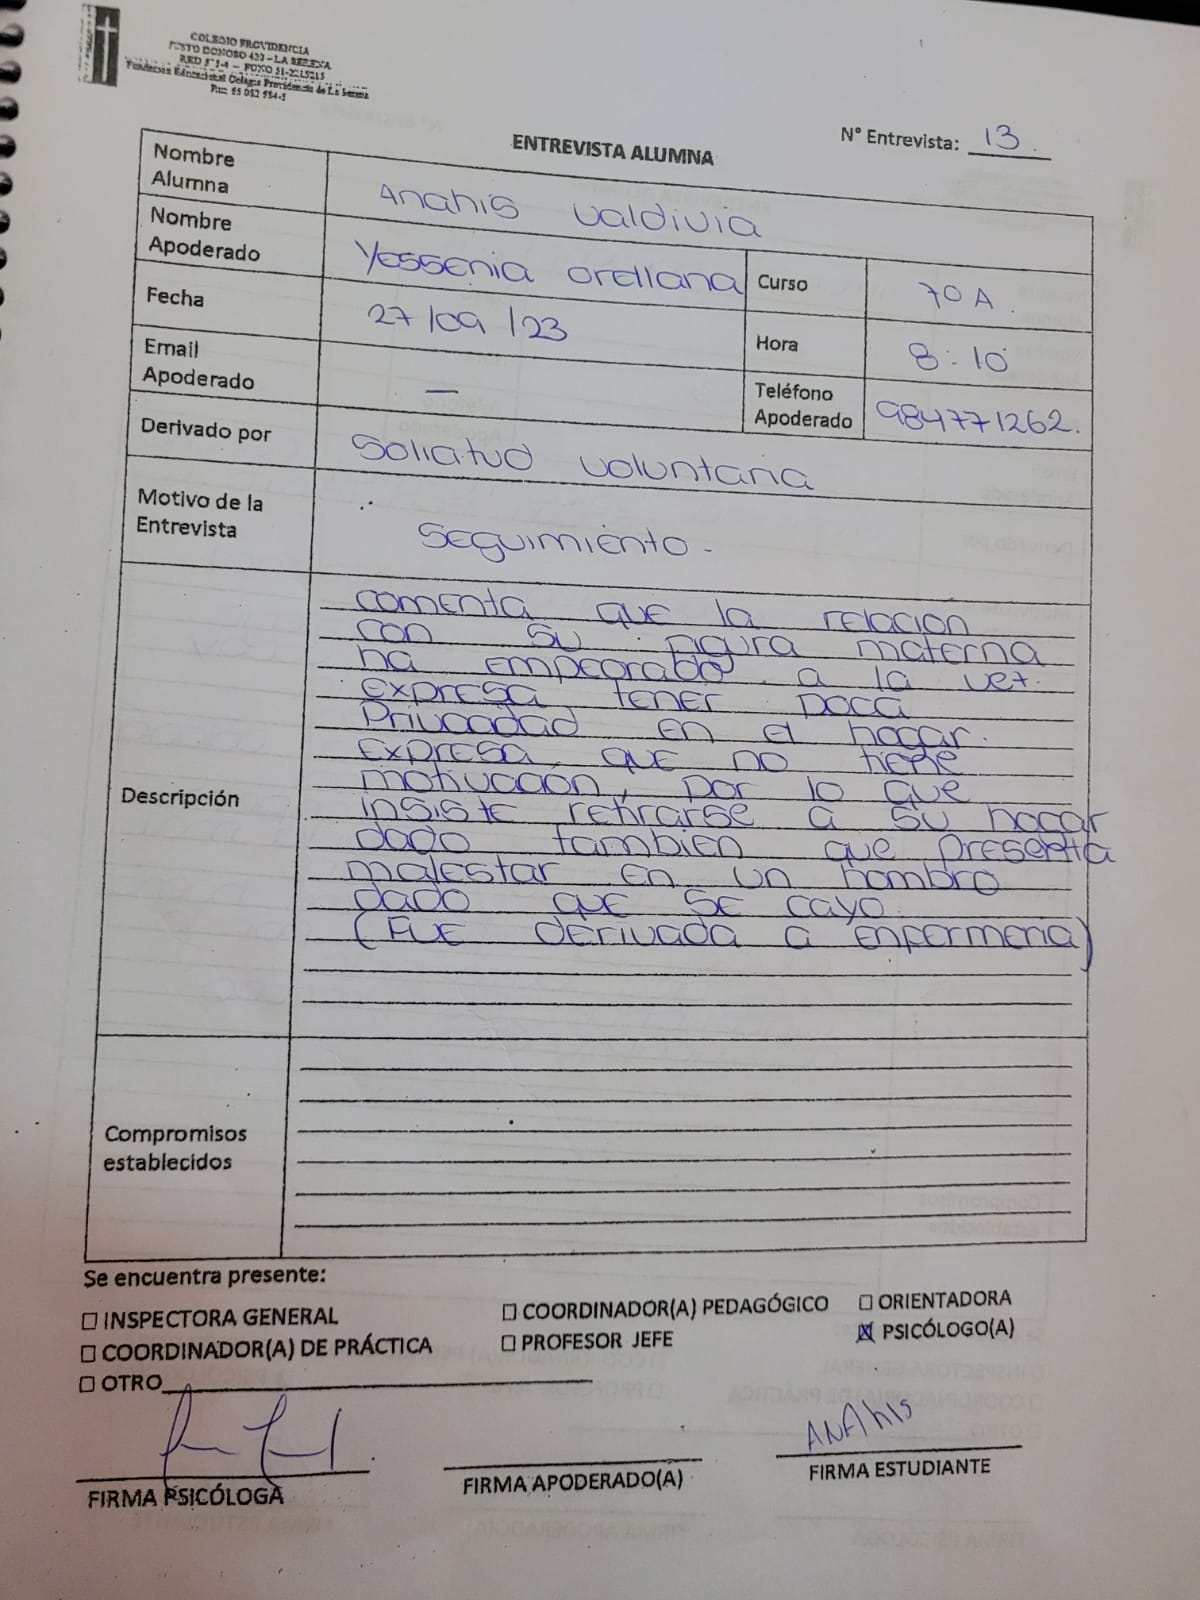 COLEGIO PROVIDENCIA
JUSTO DONOSO 420 - LA SERENA
Fundación Educacional Colegio Providencia de La Serena
N° Entrevista: 13.
ENTREVISTA ALUMNA
Nombre Alumna
Anahis Valdivia
Nombre Apoderado
Yessenia Orellana
Curso
7o A.
Fecha
27/09/23
Hora
8:10
Email Apoderado
—
Teléfono Apoderado
984771262.
Derivado por
Solicitud voluntaria
Motivo de la Entrevista
Seguimiento.
Descripción
comenta que la relacion
con su figura materna
ha empeorado, a la vez.
expresa tener poca
privacidad en el hogar.
Expresa, que no tiene
motivacion, por lo que
insiste retirarse a su hogar
dado tambien que presenta
malestar en un hombro
dado que se cayo.
(Fue derivada a enfermeria)
Compromisos establecidos
Se encuentra presente:
☐ INSPECTORA GENERAL
☐ COORDINADOR(A) PEDAGÓGICO
☐ ORIENTADORA
☐ COORDINADOR(A) DE PRÁCTICA
☐ PROFESOR JEFE
☒ PSICÓLOGO(A)
☐ OTRO
ANAhis
FIRMA PSICÓLOGA
FIRMA APODERADO(A)
FIRMA ESTUDIANTE